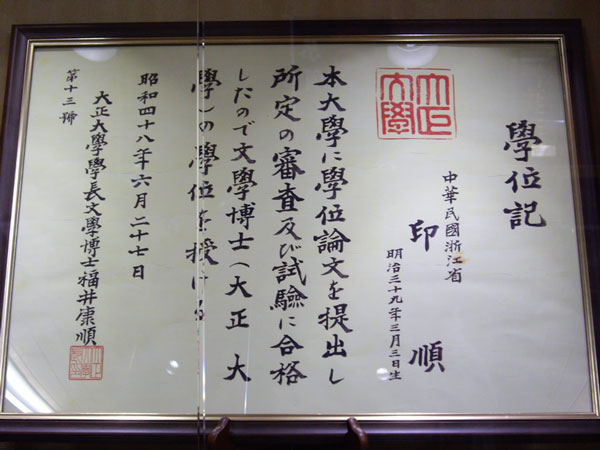 學位記
大正
大學
中華民國浙江省
印順
明治三十九年三月三日生
本大學に學位論文を提出し
所定の審査及び試驗に合格
したので文學博士(大正大
學)の學位を授ける
昭和四十八年六月二十七日
大正大學學長文學博士福井康順
第十三號